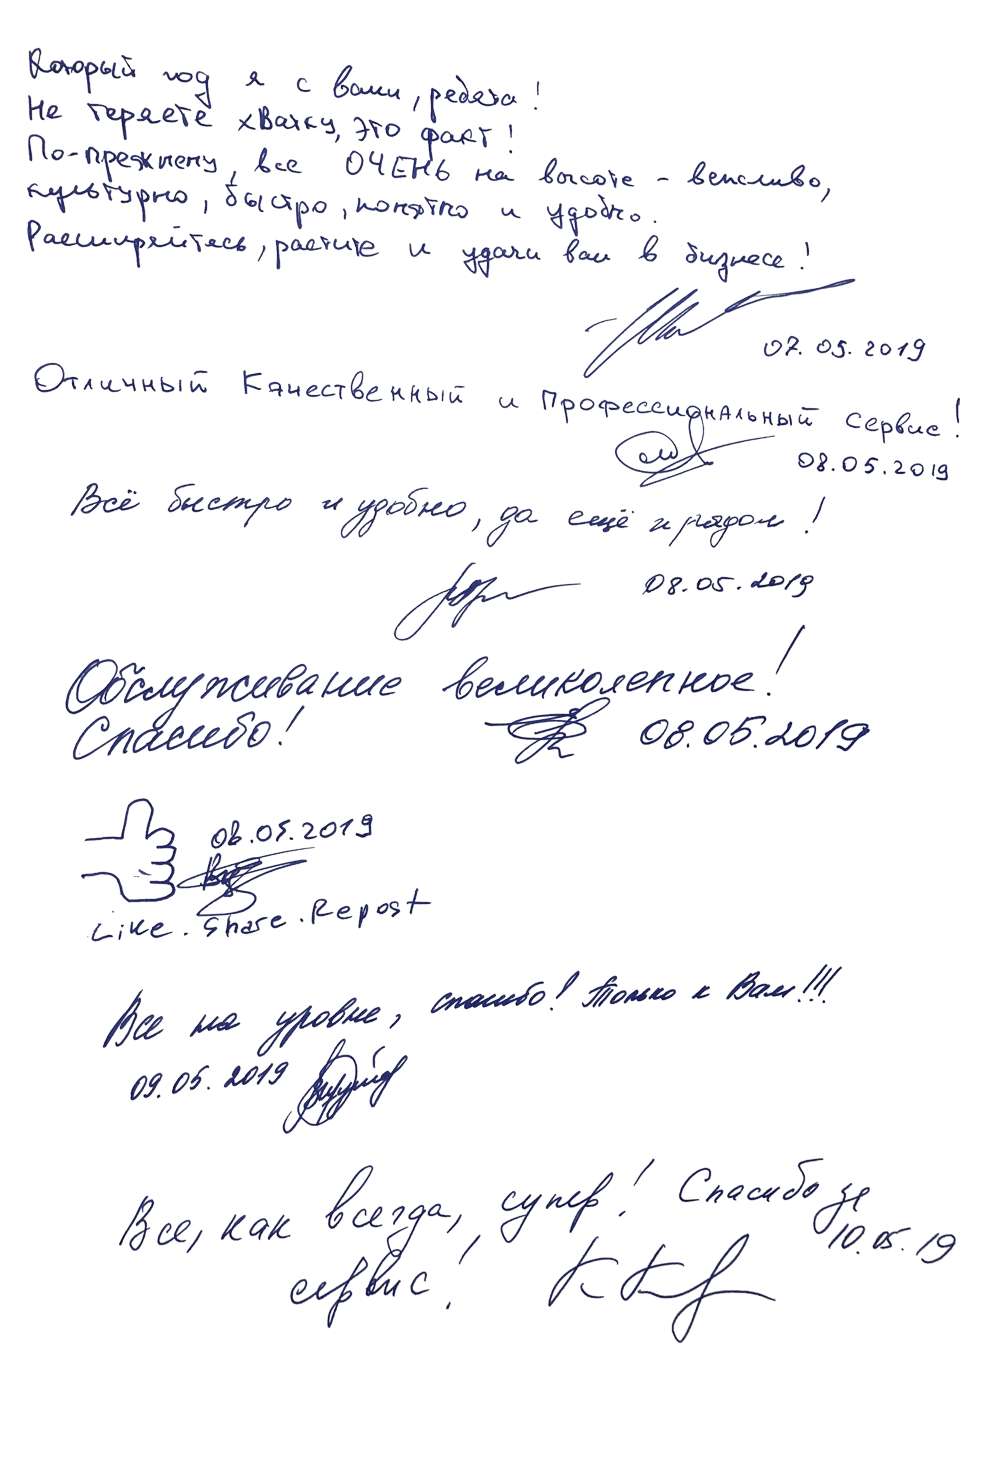 Который год я с вами, ребята!
Не теряете хватку, это факт!
По-прежнему, все ОЧЕНЬ на высоте - вежливо,
культурно, быстро, понятно и удобно.
Расширяйтесь, растите и удачи вам в бизнесе!
07.05.2019
Отличный Качественный и Профессиональный сервис!
08.05.2019
Всё быстро и удобно, да ещё и рядом!
08.05.2019
Обслуживание великолепное!
Спасибо! 08.05.2019
08.05.2019
Like. Share. Repost
Все на уровне, спасибо! Только к Вам!!!
09.05.2019
Все, как всегда, супер! Спасибо за
10.05.19
сервис!